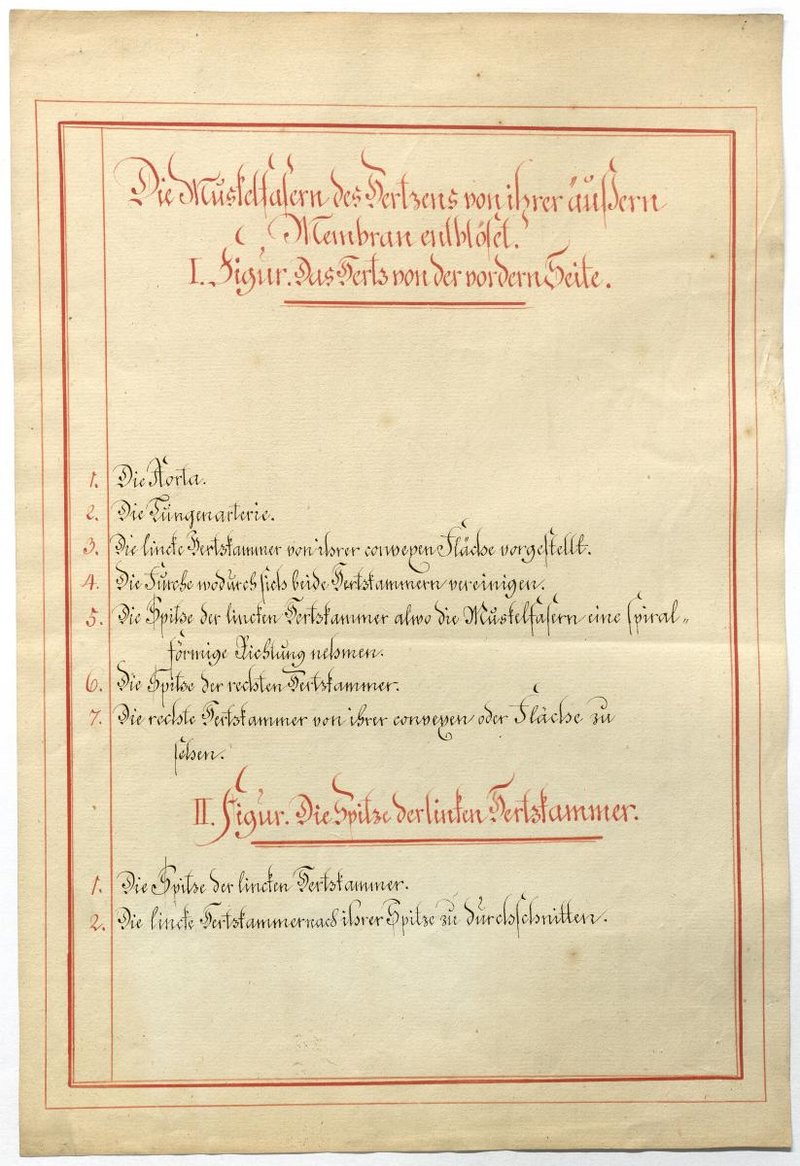 Die Muskelfasern des Hertzens von ihrer äußern
Membran entblöset.
I. Figur. Das Hertz von der vordern Seite.
1. Die Aorta.
2. Die Lungenarterie.
3. Die lincke Hertzkammer von ihrer convexen Fläche vorgestellt.
4. Die Furche wodurch sich beide Hertzkammern vereinigen.
5. Die Spitze der lincken Hertzkammer alwo die Muskelfasern eine spiral-
förmige Richtung nehmen.
6. Die Spitze der rechten Hertzkammer.
7. Die rechte Hertzkammer von ihrer convexen oder Fläche zu
sehen.
II. Figur. Die Spitze der linken Hertzkammer.
1. Die Spitze der lincken Hertzkammer.
2. Die lincke Hertzkammer nach ihrer Spitze zu durchschnitten.